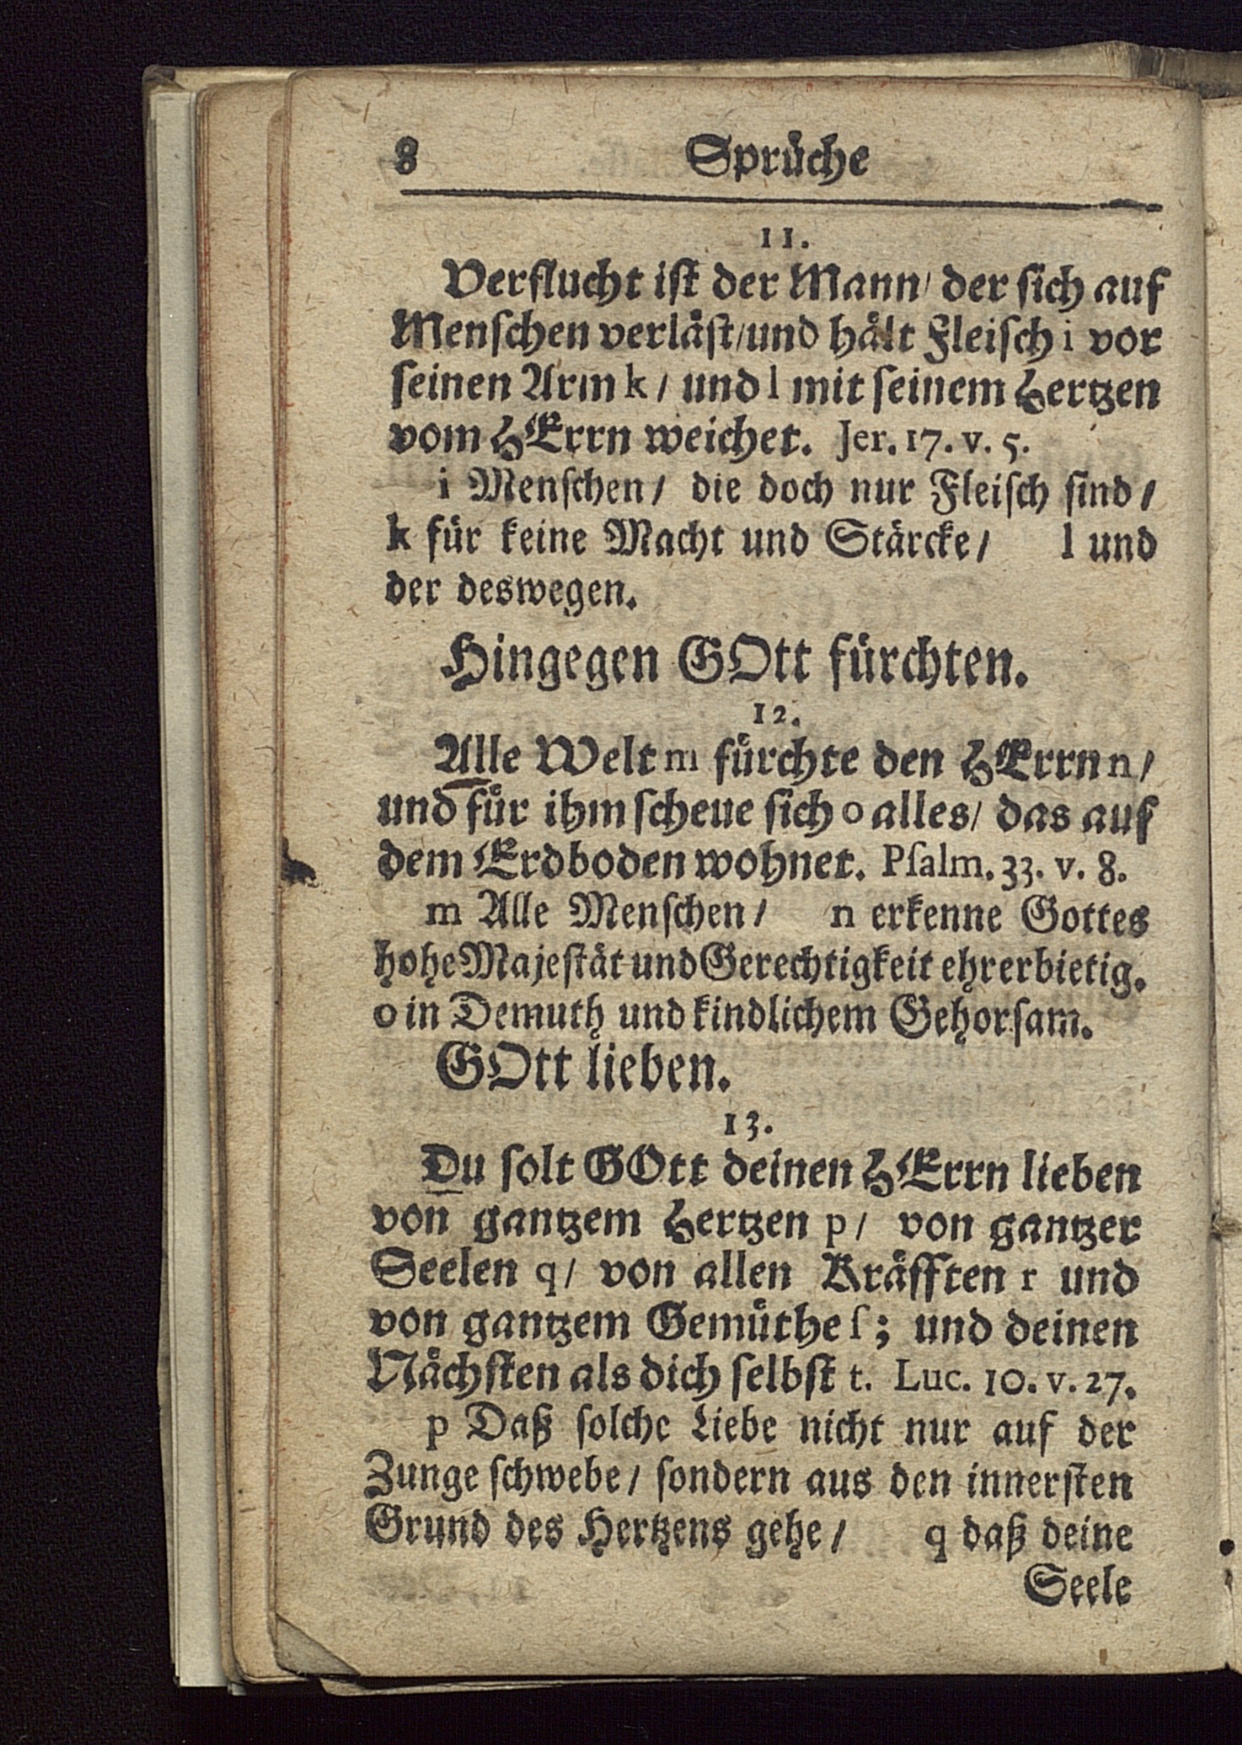 8 Sprüche
11.
Verflucht ist der Mann/ der sich auf
Menschen verläst/und hält Fleisch i vor
seinen Arm k/ und l mit seinem Hertzen
vom HErrn weichet. Jer. 17. v. 5.
i Menschen/ die doch nur Fleisch sind/
k für keine Macht und Stärcke/ l und
der deswegen.
Hingegen GOtt fürchten.
12.
Alle Welt m fürchte den HErrn n/
und für ihm scheue sich o alles/ das auf
dem Erdboden wohnet. Psalm. 33. v. 8.
m Alle Menschen/ n erkenne Gottes
hohe Majestät und Gerechtigkeit ehrerbietig.
o in Demuth und kindlichem Gehorsam.
GOtt lieben.
13.
Du solt GOtt deinen HErrn lieben
von gantzem Hertzen p/ von gantzer
Seelen q/ von allen Kräfften r und
von gantzem Gemüthe ſ; und deinen
Nächsten als dich selbst t. Luc. 10. v. 27.
p Daß solche Liebe nicht nur auf der
Zunge schwebe/ sondern aus den innersten
Grund des Hertzens gehe/ q daß deine
Seele